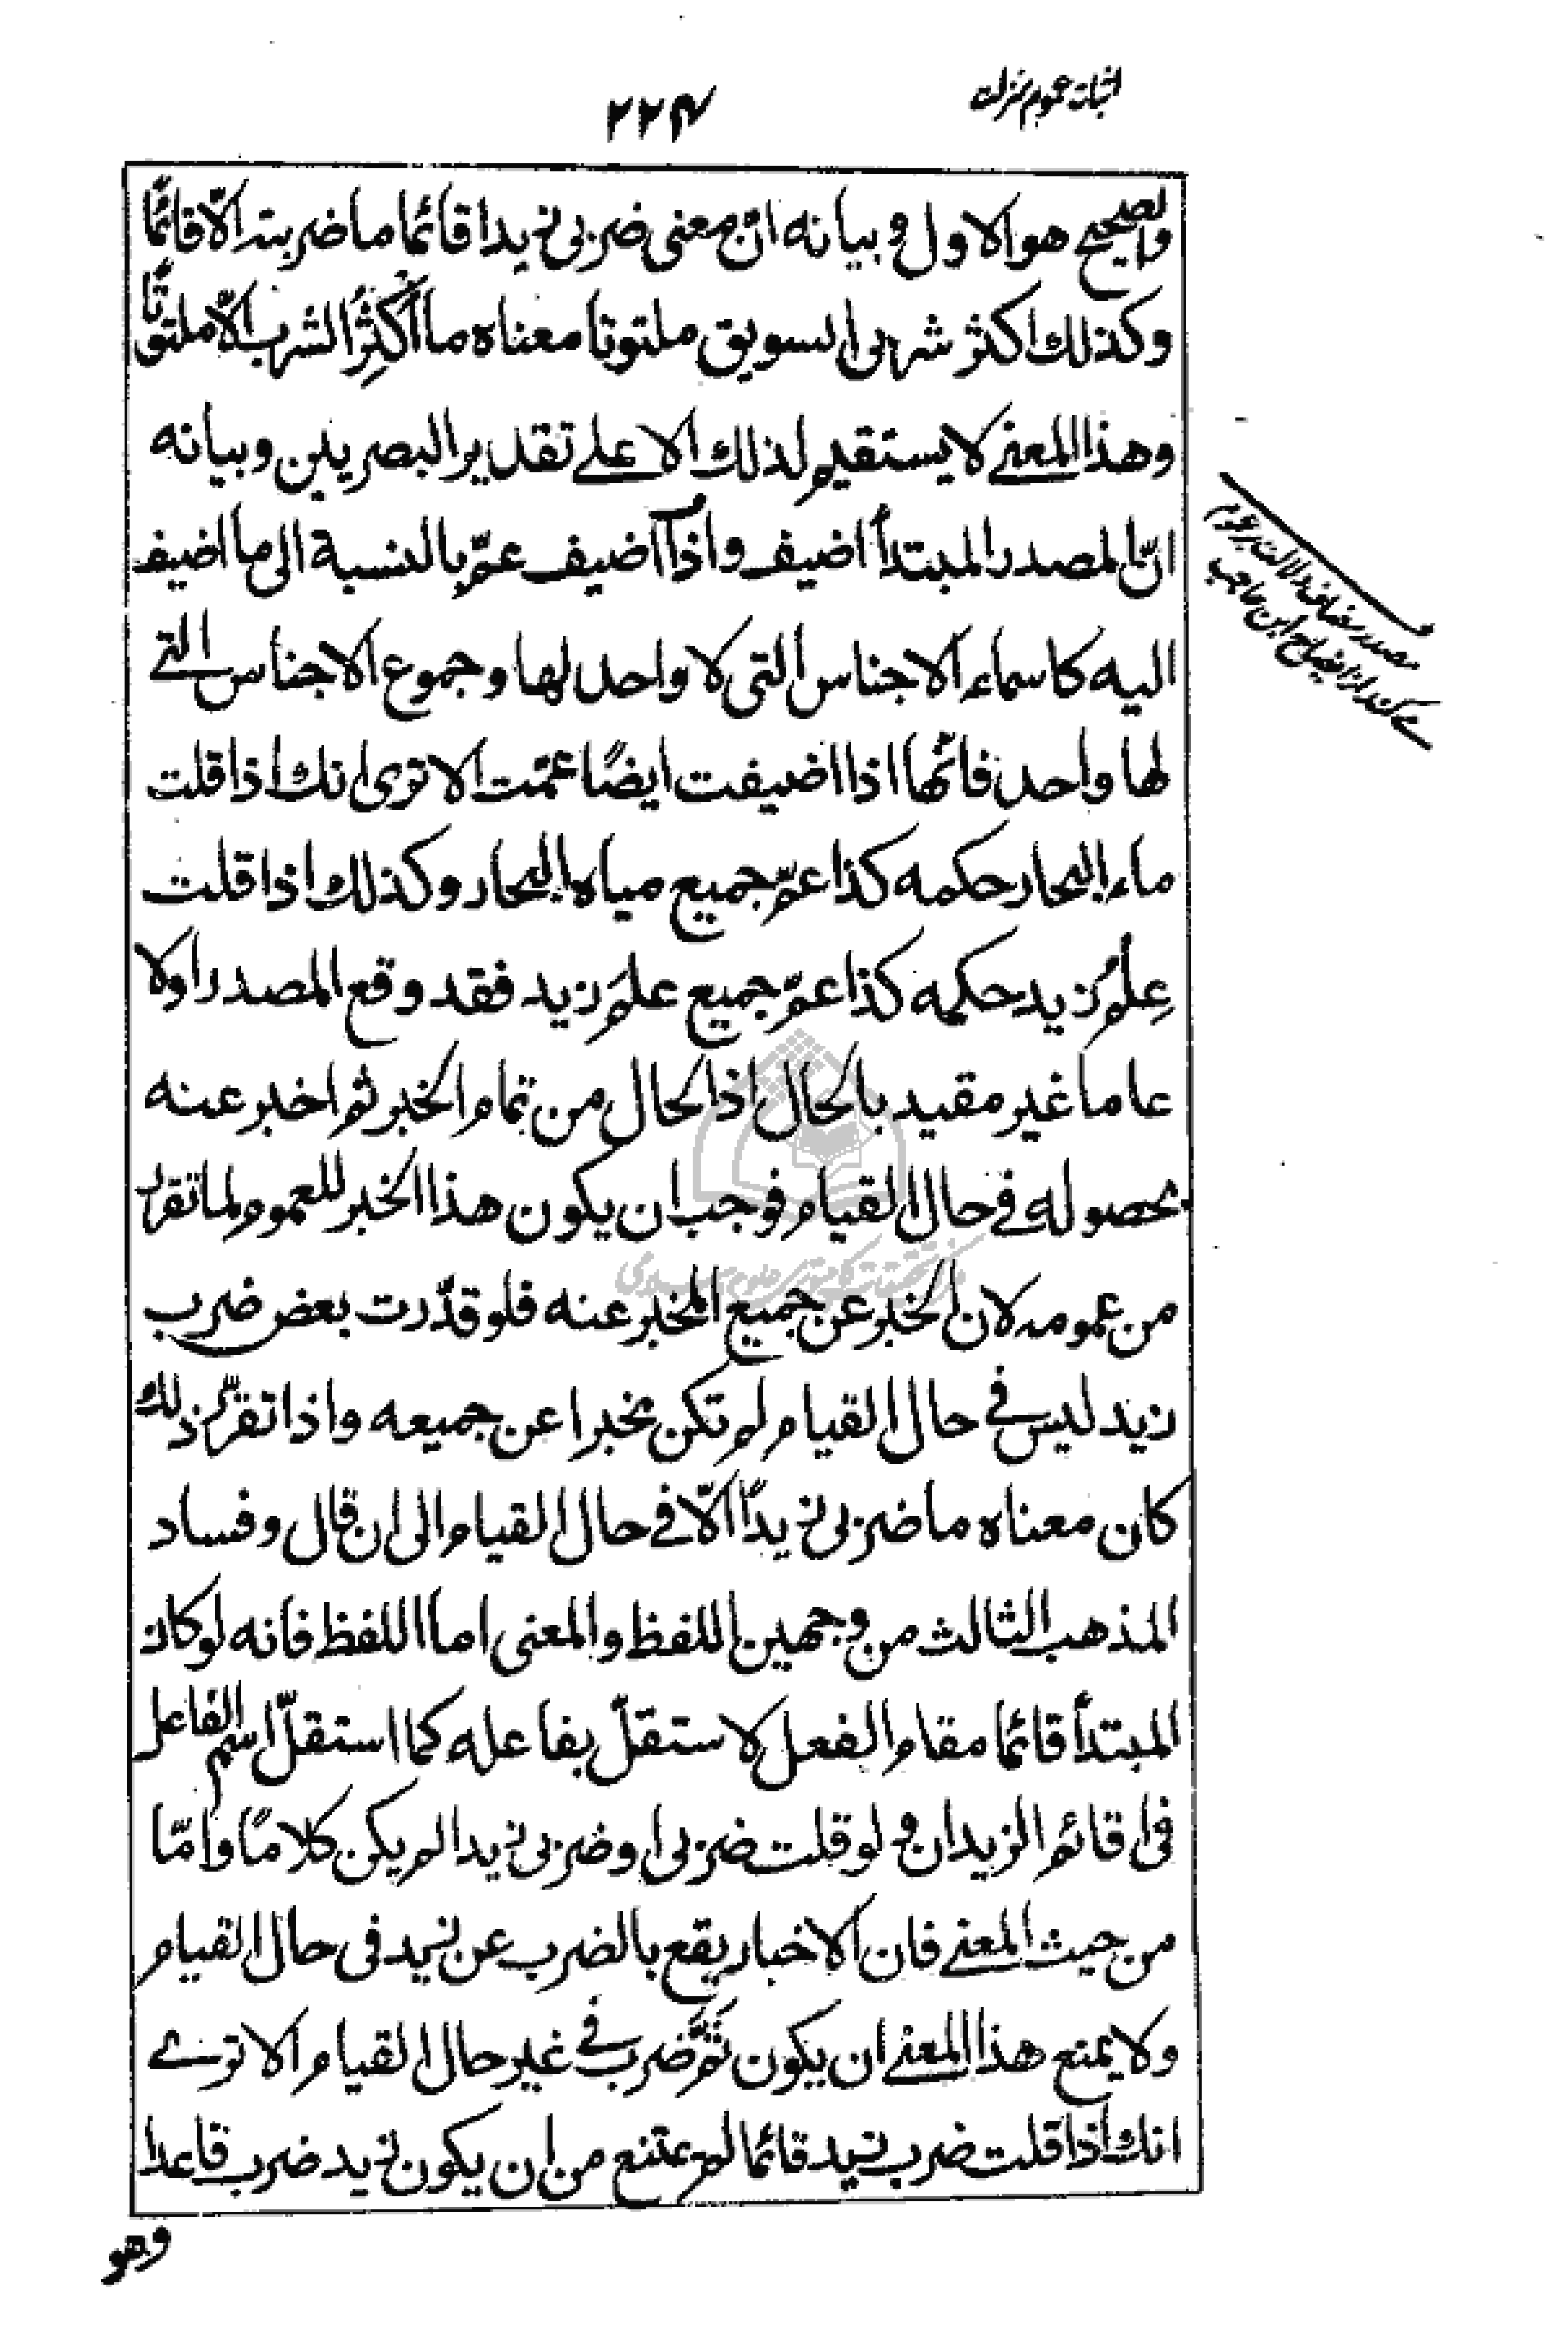 اثبات عموم منزلت
۲۲۴
والصحيح هو الاول و بيانه انّ معنى ضربى زيدا قائما ما ضربته الّا قائمًا
وكذلك اكثر شربى السويق ملتوتا معناه ما اكثِرُ الشرب الّا ملتوتًا
وهذا المعنے لا يستقيم لذلك الا علے تقدير البصريين وبيانه
انّ المصدر المبتدأ اضيف واذا اضيف عمّ بالنسبة الى ما اضيف
اليه كاسماء الاجناس التى لا واحد لها وجموع الاجناس التے
لها واحد فانّها اذا اضيفت ايضًا عمّت الا ترى انك اذا قلت
ماء البحار حكمه كذا عمّ جميع مياه البحار وكذلك اذا قلت
عِلْمُ زيد حكمه كذا عمّ جميع علم زيد فقد وقع المصدر اولا
عاما غير مقيد بالحال اذ الحال من تمام الخبر ثم اخبر عنه
بحصوله فے حال القيام فوجب ان يكون هذا الخبر للعموم لما تقرر
من عمومه لان الخبر عن جميع المخبر عنه فلو قدّرت بعض ضرب
زيد ليس فے حال القيام لم تكن مخبرا عن جميعه واذا تقرّر ذلك
كان معناه ما ضربى زيدًا الّا فے حال القيام الى ان قال وفساد
المذهب الثالث من وجهين اللفظ والمعنى اما اللفظ فانه لو كان
المبتدأ قائما مقام الفعل لاستقلّ بفاعله كما استقلّ اسم الفاعل
فى اقائم الزيدان و لو قلت ضربى او ضربى زيدا لم يكن كلامًا وامّا
من حيث المعنے فان الاخبار يقع بالضرب عن زيد فى حال القيام
ولا يمنع هذا المعنے ان يكون ثَمَّ ضرب فے غير حال القيام الا ترے
انك اذا قلت ضرب زيد قائما لم يمتنع من ان يكون زيد ضرب قاعدا
وهو
مصدر مضاف دلالت بر عموم
مے كند از ايضاح ابن حاجب